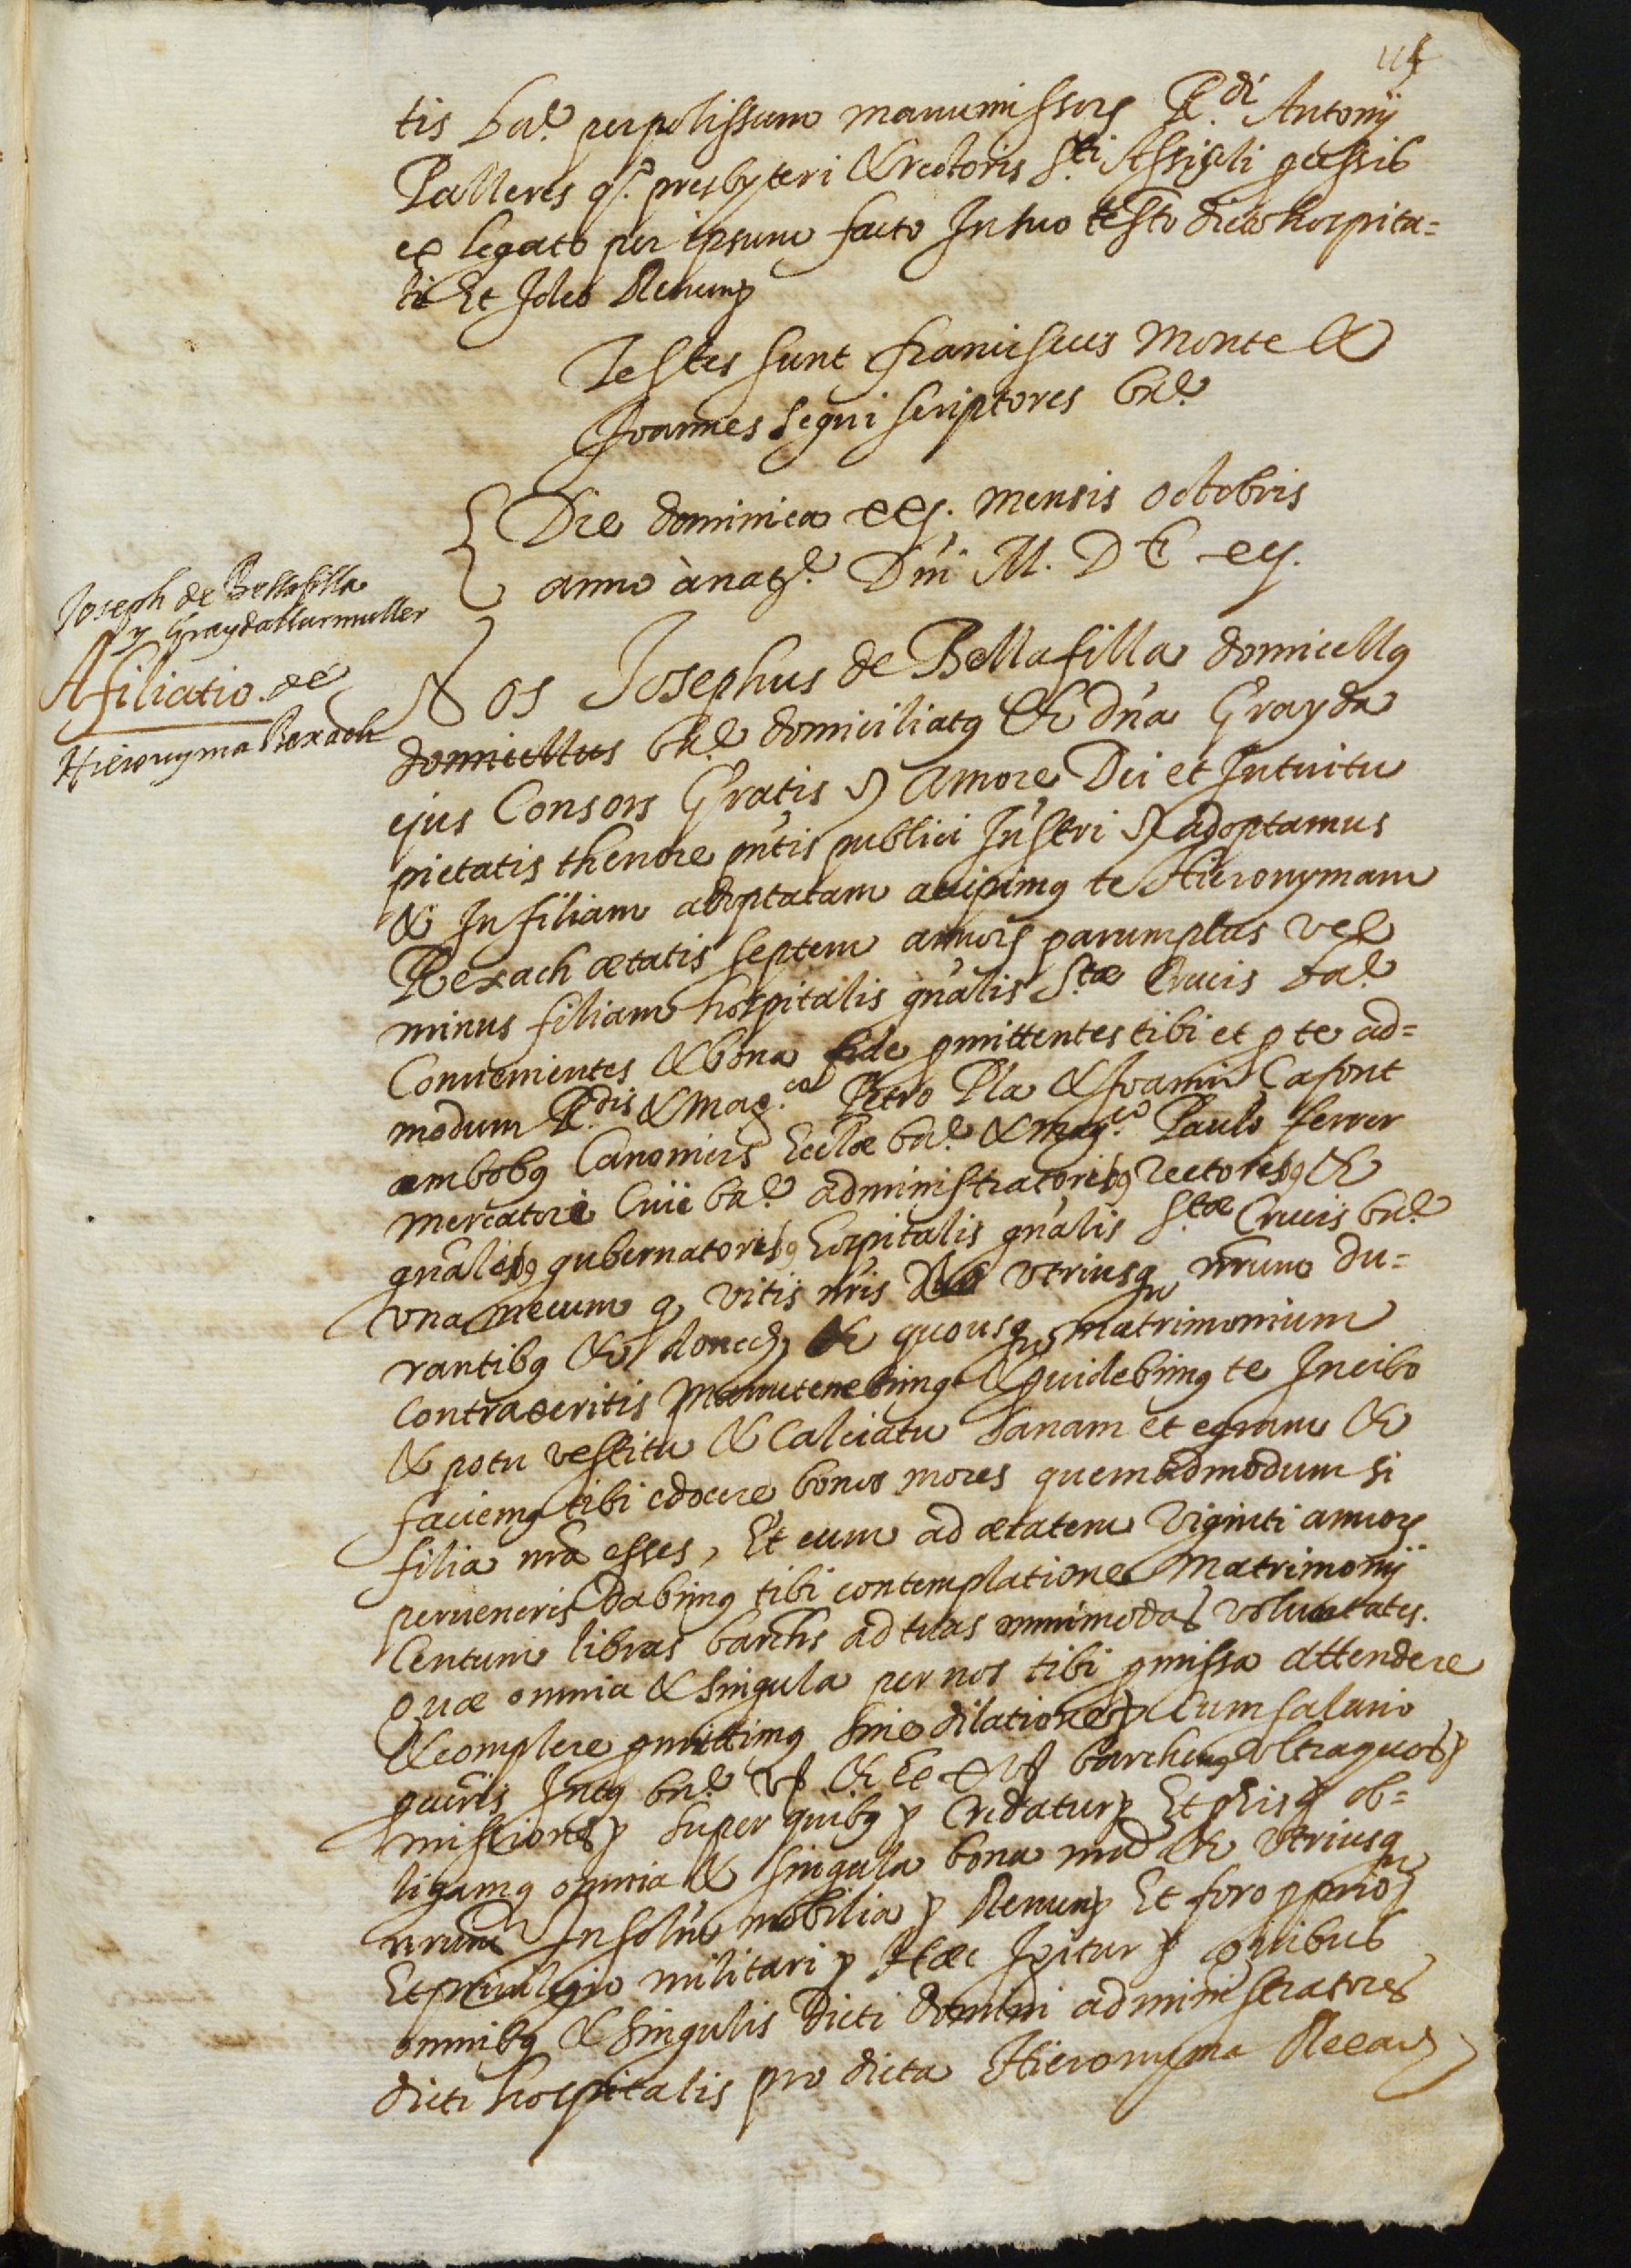 114
tis bar. per manumissores R.di Antonij
Palleres q. presbyteri & rectoris S.ti Assiscli
ex legato per ipsum facto In suo testo dicto hospita=
li Et Ideo Renun
Testes sunt franciscus Monte &
Joannes Segui scriptores bar.
Die dominica mensis octobris
anno à nat. Dni M. D C
Joseph de Bellafilla
y Grayda sa muller
Afiliatio de
Hieronyma Rexach
Nos Josephus de Bellafilla domicellus
domicellus bar. domiciliatus & dña Grayda
ejus Consors Gratis & Amore Dei et Intuitu
pietatis thenore pñtis publici Instri adoptamus
& In filiam adoptatam accipimus te Hieronymam
Rexach ætatis septem annors parum plus vel
minus filiam hospitalis gñalis S.tæ Crucis bar.
Conuenientes & bona fide pmittentes tibi et p te ad=
modum R.dis & Mag.co Petro Pla & Joanni Çafont
ambobus Canonicis Ecclæ bar. & Mag.co Paulo ferrer
mercatori Ciui bar. administratoribus rectoribus &
gñalibus gubernatoribus hospitalis gñalis S.tæ Crucis bar.
vna mecum q vitis nris utriusq nrum du=
rantibus & donech & quousq matrimonium
contraxeritis manutenebimus & puidebimus te In cibo
& potu vestitu & Calciatu sanam et egram &
faciemus tibi edocere bonos mores quemadmodum si
filia nrã esses, Et cum ad ætatem viginti annors
perueneris dabimus tibi contemplatione Matrimonij
Centum libras barchs ad tuas omnimodas voluntates.
Quæ omnia & singula per nos tibi pmissa attendere
& complere pmittimus sine dilatione Cum salario
pcuris Intus bar. & barchens vltra quos
missione super quibus credatur Et p his ob=
ligamus omnia & singula bona nrã & vtriusq
nrum In solũ mobilia Renun Et foro pprio
Et priuilegio militari Hæc Igitur Quibus
omnibus & singulis Dicti Domini administratores
dicti hospitalis pro dicta Hieronyma